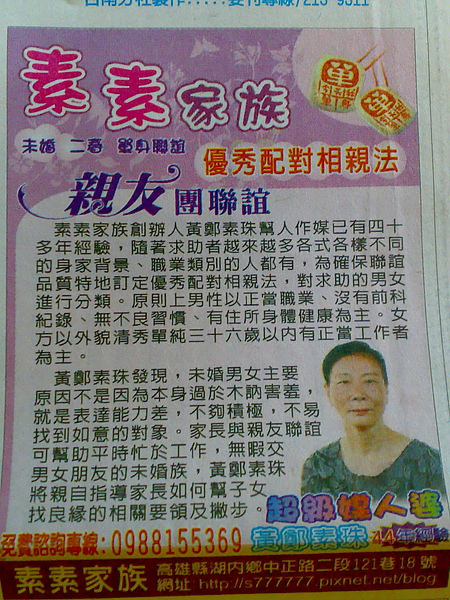 素素家族
未婚 二春 單身聯誼
優秀配對相親法
親友團聯誼
素素家族創辦人黃鄭素珠幫人作媒已有四十
多年經驗，隨著求助者越來越多各式各樣不同
的身家背景、職業類別的人都有，為確保聯誼
品質特地訂定優秀配對相親法，對求助的男女
進行分類。原則上男性以正當職業、沒有前科
紀錄、無不良習慣、有住所身體健康為主。女
方以外貌清秀單純三十六歲以內有正當工作者
為主。
黃鄭素珠發現，未婚男女主要
原因不是因為本身過於木訥害羞，
就是表達能力差，不夠積極，不易
找到如意的對象。家長與親友聯誼
可幫助平時忙於工作，無暇交
男女朋友的未婚族，黃鄭素珠
將親自指導家長如何幫子女
找良緣的相關要領及撇步。
超級媒人婆
黃鄭素珠 44年經驗
免費諮詢專線:0988155369
素素家族
高雄縣湖內鄉中正路二段121巷18號
網址:http://s777777.pixnet.net/blog